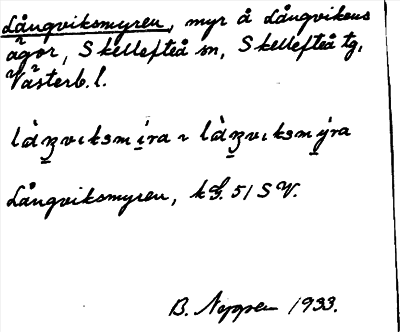 Långviksmyren, myr å Långvikens
ägor, Skellefteå sn, Skellefteå tg,
Västerb. l.
làŋvıksmíra ~ làŋvıksmýra
Långviksmyren, kG. 51 SV.
B. 1933.